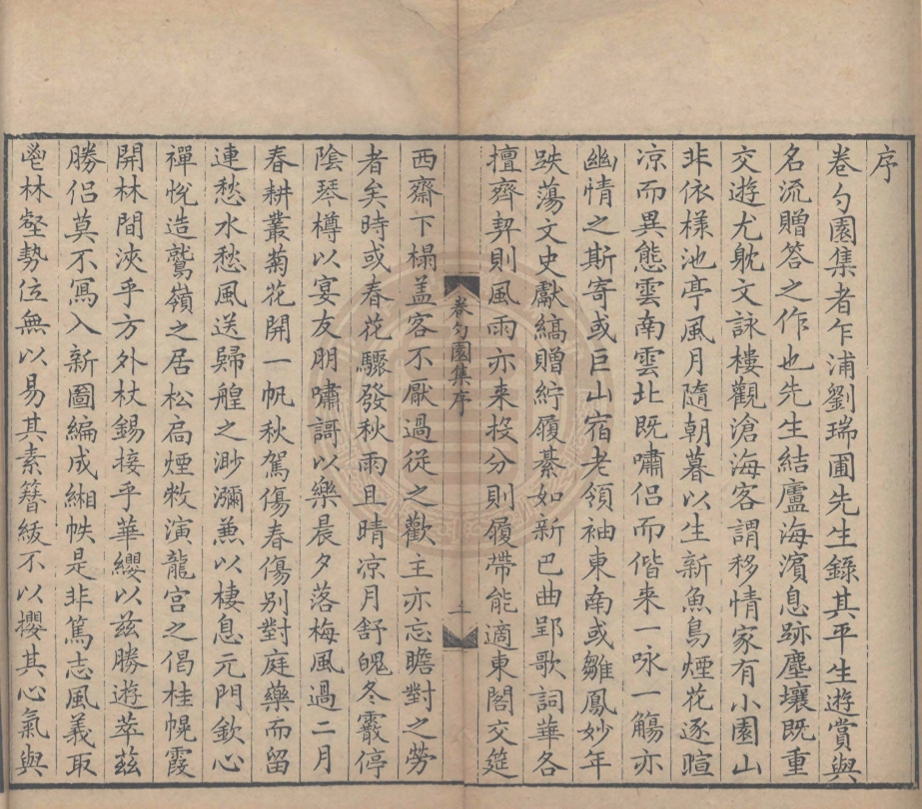 序
卷勺園集者乍浦劉瑞圃先生錄其平生遊賞與
名流贈答之作也先生結廬海濱息跡塵壤既重
交遊尤躭文詠樓觀滄海客謂移情家有小園山
非依樣池亭風月隨朝暮以生新魚鳥煙花逐暄
凉而異態雲南雲北既嘯侶而偕来一咏一觴亦
幽情之斯寄或巨山宿老領袖東南或雛鳳妙年
跌蕩文史獻縞贈紵履綦如新巴曲郢歌詞華各
擅齊契則風雨亦来投分則履帶能適東閤交筵
卷勺園集序
西齋下榻盖客不厭過從之歡王亦忘瞻對之勞
者矣時或春花驟發秋雨且晴凉月舒魄冬霰停
陰琴樽以宴友朋嘯謌以樂晨夕落梅風過二月
春耕叢菊花開一帆秋駕傷春傷別對庭藥而留
連愁水愁風送歸艎之渺瀰兼以棲息元門欽心
禪悅造鷲嶺之居松扃煙敕演龍宫之偈桂幌霞
開林間浹乎方外杖錫接乎華纓以兹勝遊萃兹
勝侣莫不寫入新圖編成緗帙是非篤志風義取
鬯林壑勢位無以易其素簪綬不以攖其心氣與